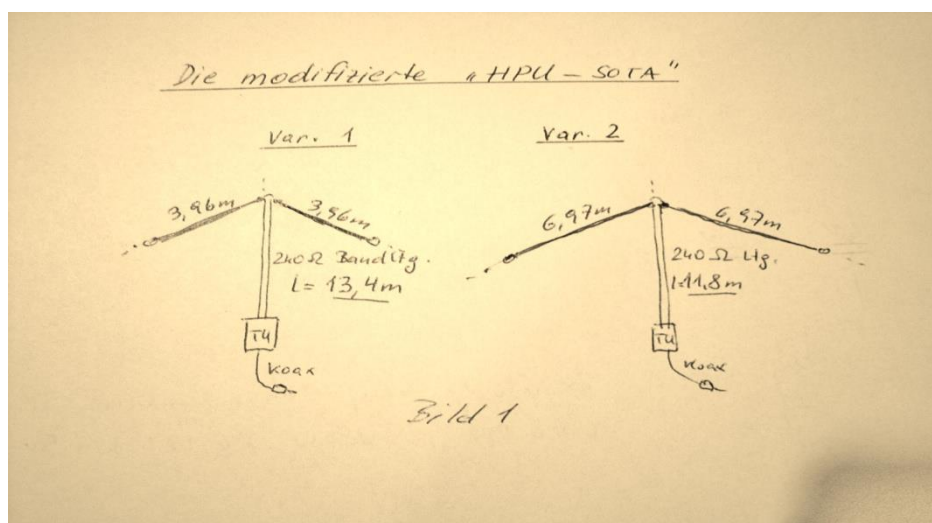 Die modifizierte "HPU - SOTA"
Var. 1
3,96m 3,96m
240 Ω Bandltg.
l = 13,4m
T4
Koax
Var. 2
6,97m 6,97m
240 Ω Ltg.
l=11,8m
T4
Koax
Bild 1